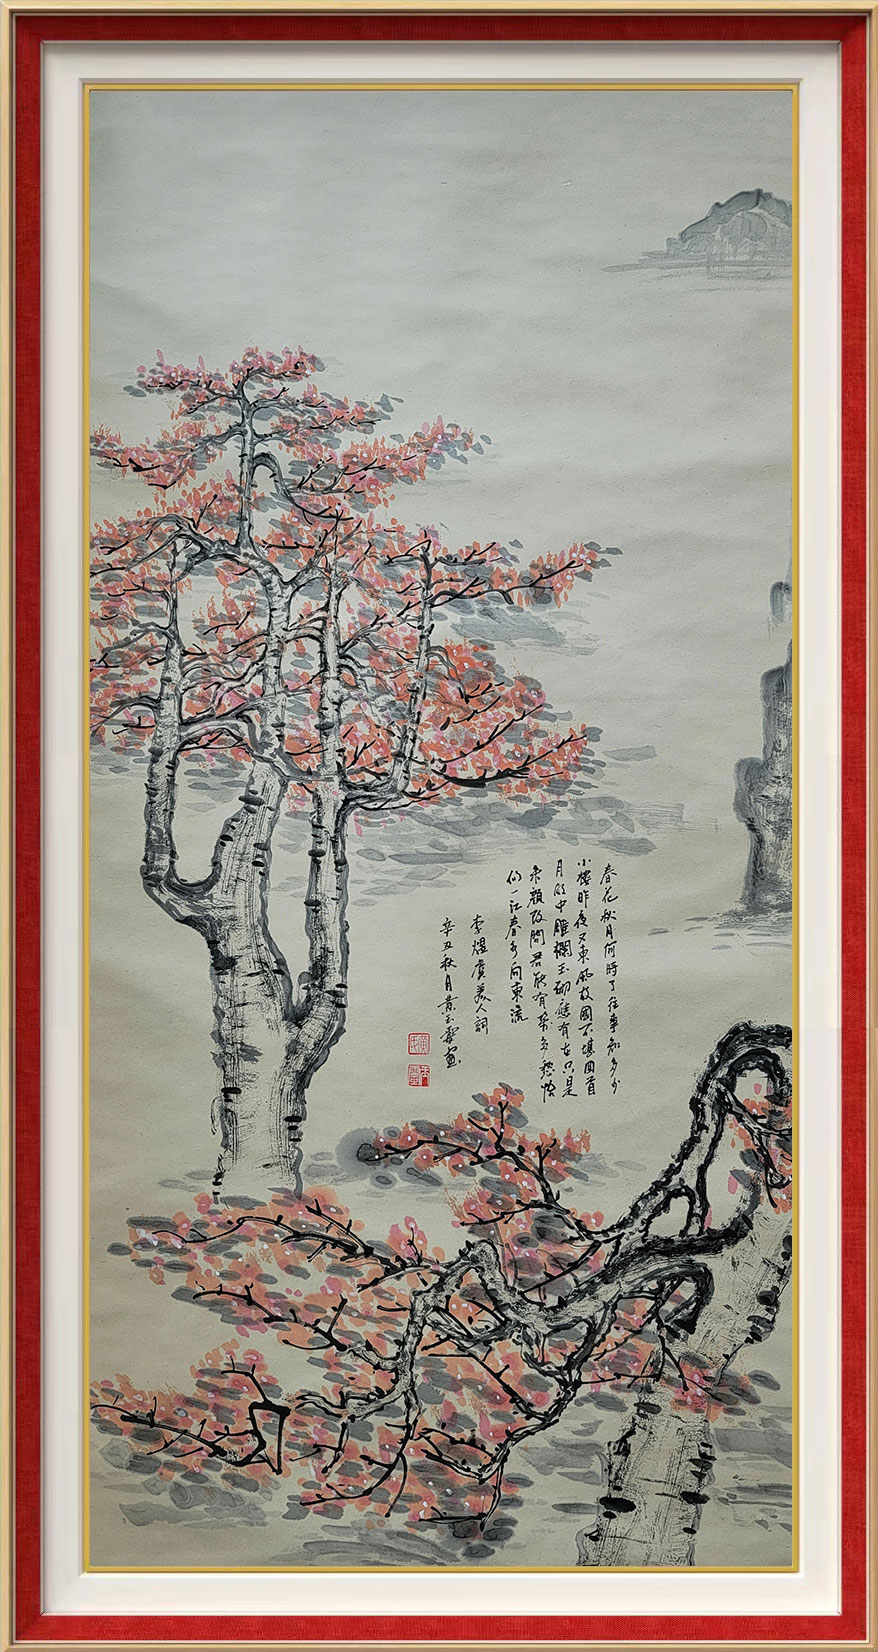 春花秋月何時了往事知多少
小樓昨夜又東風故國不堪回首
月明中雕欄玉砌應有在只是
朱顏改問君能有幾多愁恰
似一江春水向東流
李煜虞美人詞
辛丑秋月黃玉畫